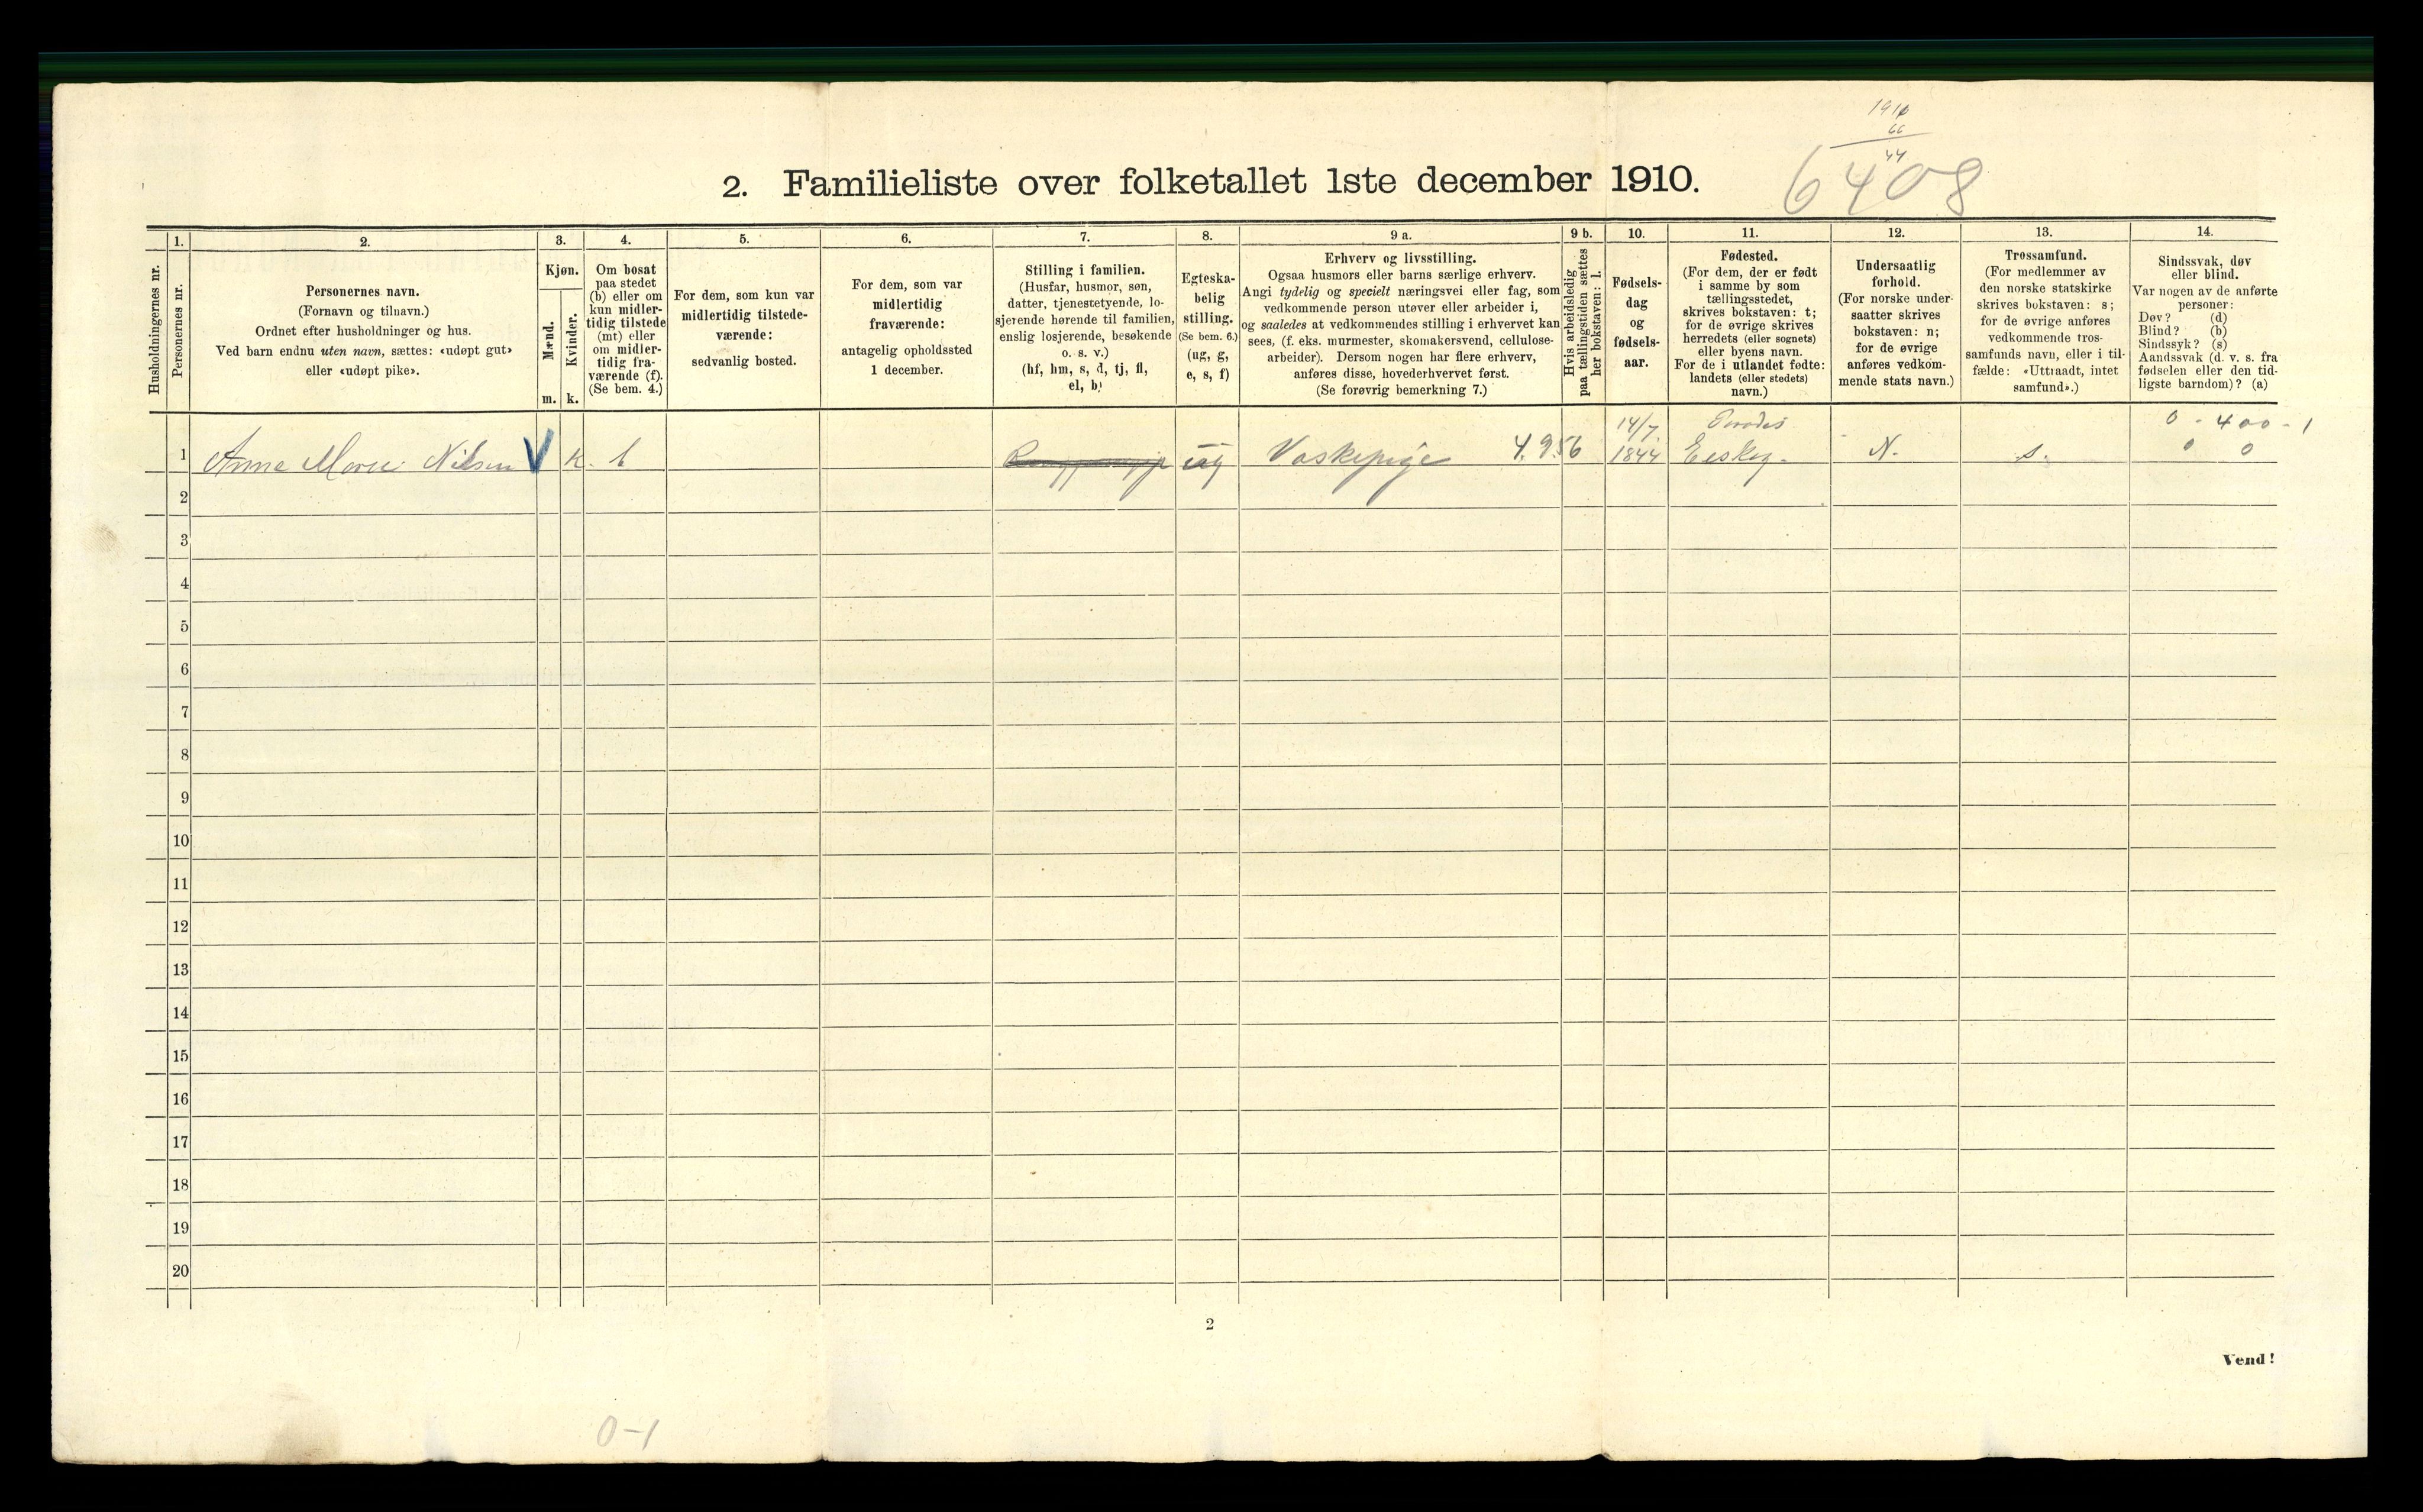 1910
66
44
6408
2. Familieliste over folketallet 1ste december 1910.
1. 2. 3. 4. 5. 6. 7. 8. 9 a. 9 b. 10. 11. 12. 13. 14.
Husholdningernes nr.
Personernes nr.
Personernes navn.
(Fornavn og tilnavn.)
Ordnet efter husholdninger og hus.
Ved barn endnu uten navn, sættes: «udøpt gut»
eller «udøpt pike».
Kjøn.
Mænd.
Kvinder.
m. k.
Om bosat
paa stedet
(b) eller om
kun midler-
tidig tilstede
(mt) eller
om midler-
tidig fra-
værende (f).
(Se bem. 4.)
For dem, som kun var
midlertidig tilstede-
værende:
sedvanlig bosted.
For dem, som var
midlertidig
fraværende:
antagelig opholdssted
1 december.
Stilling i familien.
(Husfar, husmor, søn,
datter, tjenestetyende, lo-
sjerende hørende til familien,
enslig losjerende, besøkende
o. s. v.)
(hf, hm, s, d, tj, fl,
el, b)
Egteska-
belig
stilling.
(Se bem. 6.)
(ug, g,
e, s, f)
Erhverv og livsstilling.
Ogsaa husmors eller barns særlige erhverv.
Angi tydelig og specielt næringsvei eller fag, som
vedkommende person utøver eller arbeider i,
og saaledes at vedkommendes stilling i erhvervet kan
sees, (f. eks. murmester, skomakersvend, cellulose-
arbeider). Dersom nogen har flere erhverv,
anføres disse, hovederhvervet først.
(Se forøvrig bemerkning 7.)
Hvis arbeidsledig
paa tællingstiden sættes
her bokstaven: l.
Fødsels-
dag
og
fødsels-
aar.
Fødested.
(For dem, der er født
i samme by som
tællingsstedet,
skrives bokstaven: t;
for de øvrige skrives
herredets (eller sognets)
eller byens navn.
For de i utlandet fødte:
landets (eller stedets)
navn.)
Undersaatlig
forhold.
(For norske under-
saatter skrives
bokstaven: n;
for de øvrige
anføres vedkom-
mende stats navn.)
Trossamfund.
(For medlemmer av
den norske statskirke
skrives bokstaven: s;
for de øvrige anføres
vedkommende tros-
samfunds navn, eller i til-
fælde: «Uttraadt, intet
samfund».)
Sindssvak, døv
eller blind.
Var nogen av de anførte
personer:
Døv? (d)
Blind? (b)
Sindssyk? (s)
Aandssvak (d. v. s. fra
fødselen eller den tid-
ligste barndom)? (a)
14/7. 0 - 400 - 1
1 Anne Marie Nilsen V k. b ug Vaskepige 4.956 1844 Eidskog. N. s. 0 0
2
3
4
5
6
7
8
9
10
11
12
13
14
15
16
17
18
19
20
2
Vend!
0-1